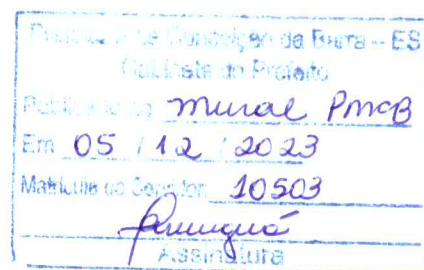 Prefeitura de Conceição da Barra - ES
Gabinete do Prefeito
Publicado no mural PMCB
Em 05 / 12 / 2023
Matrícula do Servidor 10503
Assinatura